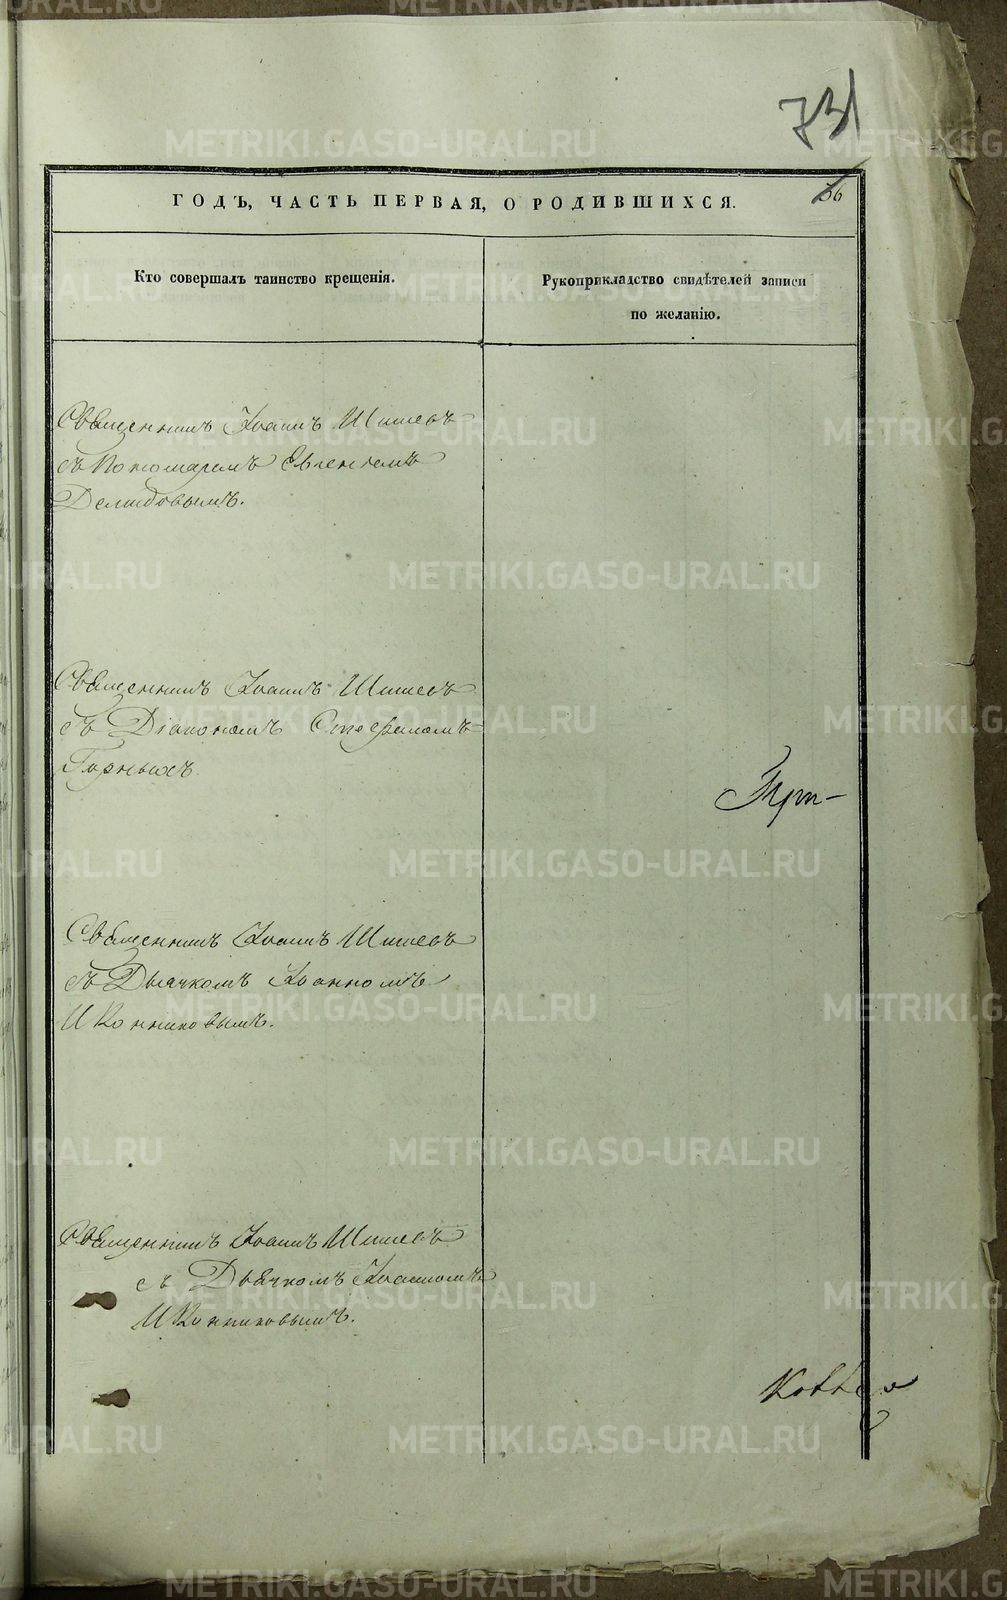 73
66
ГОДЪ, ЧАСТЬ ПЕРВАЯ, О РОДИВШИХСЯ.
Кто совершалъ таинство крещенія.
Рукоприкладство свидѣтелей записи
по желанію.
Священникъ Іоаннъ Шишевъ
съ Пономаремъ Евгеніемъ
Демидовымъ.
Священникъ Іоаннъ Шишевъ
съ Діакономъ Стефаномъ
Горныхъ
Священникъ Іоаннъ Шишевъ
съ Дьячкомъ Іоанномъ
Иконниковымъ.
Священникъ Іоаннъ Шишевъ
съ Дьячкомъ Іоанномъ
Иконниковымъ.
METRIKI.GASO-URAL.RU